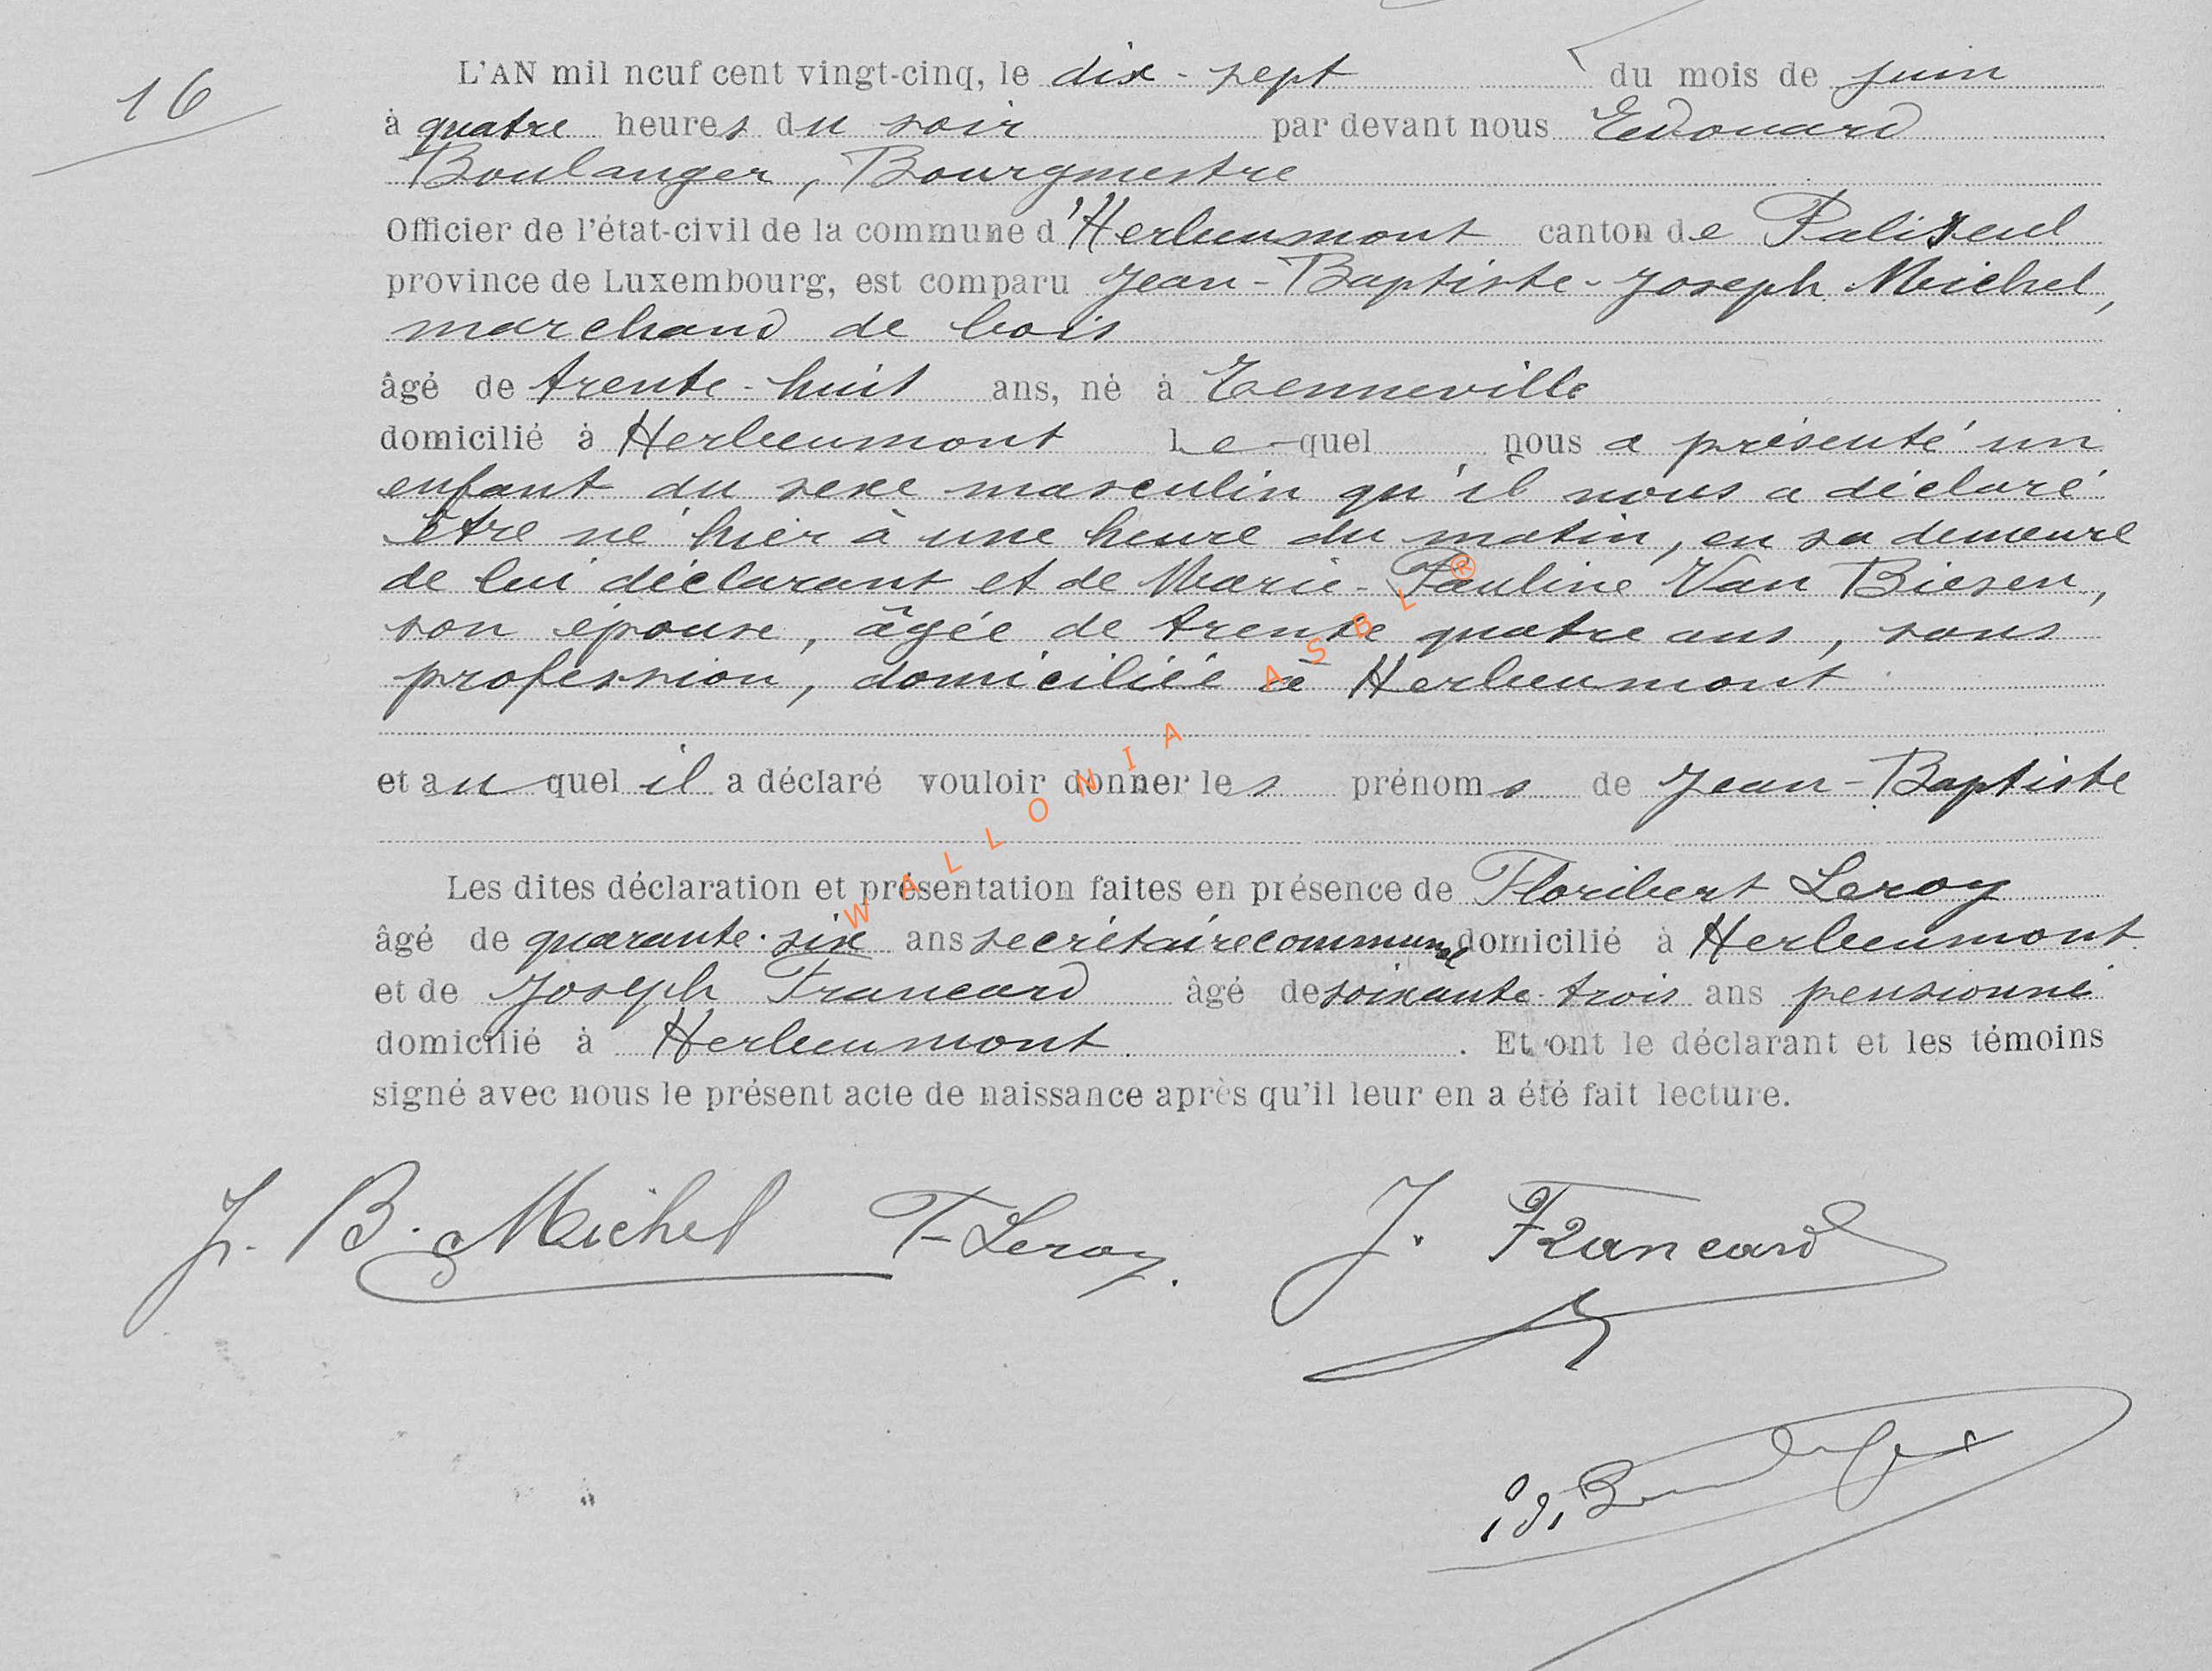 16
L'AN mil neuf cent vingt-cinq, le dix-sept du mois de juin
à quatre heures du soir par devant nous Edouard
Boulanger, Bourgmestre
Officier de l'état-civil de la commune d'Herbeumont canton de Paliseul
province de Luxembourg, est comparu Jean-Baptiste-Joseph Michel,
marchand de bois
âgé de trente-huit ans, né à Tenneville
domicilié à Herbeumont Le-quel nous a présenté un
enfant du sexe masculin qu'il nous a déclaré
être né hier à une heure du matin, en sa demeure
de lui déclarant et de Marie-Pauline Van Biesen,
son épouse, âgée de trente quatre ans, sans
profession, domiciliée à Herbeumont
et au quel il a déclaré vouloir donner les prénoms de Jean-Baptiste
Les dites déclaration et présentation faites en présence de Floribert Leroy
âgé de quarante-six ans secrétaire communal domicilié à Herbeumont
et de Joseph Francard âgé de soixante-trois ans pensionné
domicilié à Herbeumont. Et ont le déclarant et les témoins
signé avec nous le présent acte de naissance après qu'il leur en a été fait lecture.
J. B. Michel F. Leroy. J. Francard
Ed. Boulanger
WALLONIA ASBL ®